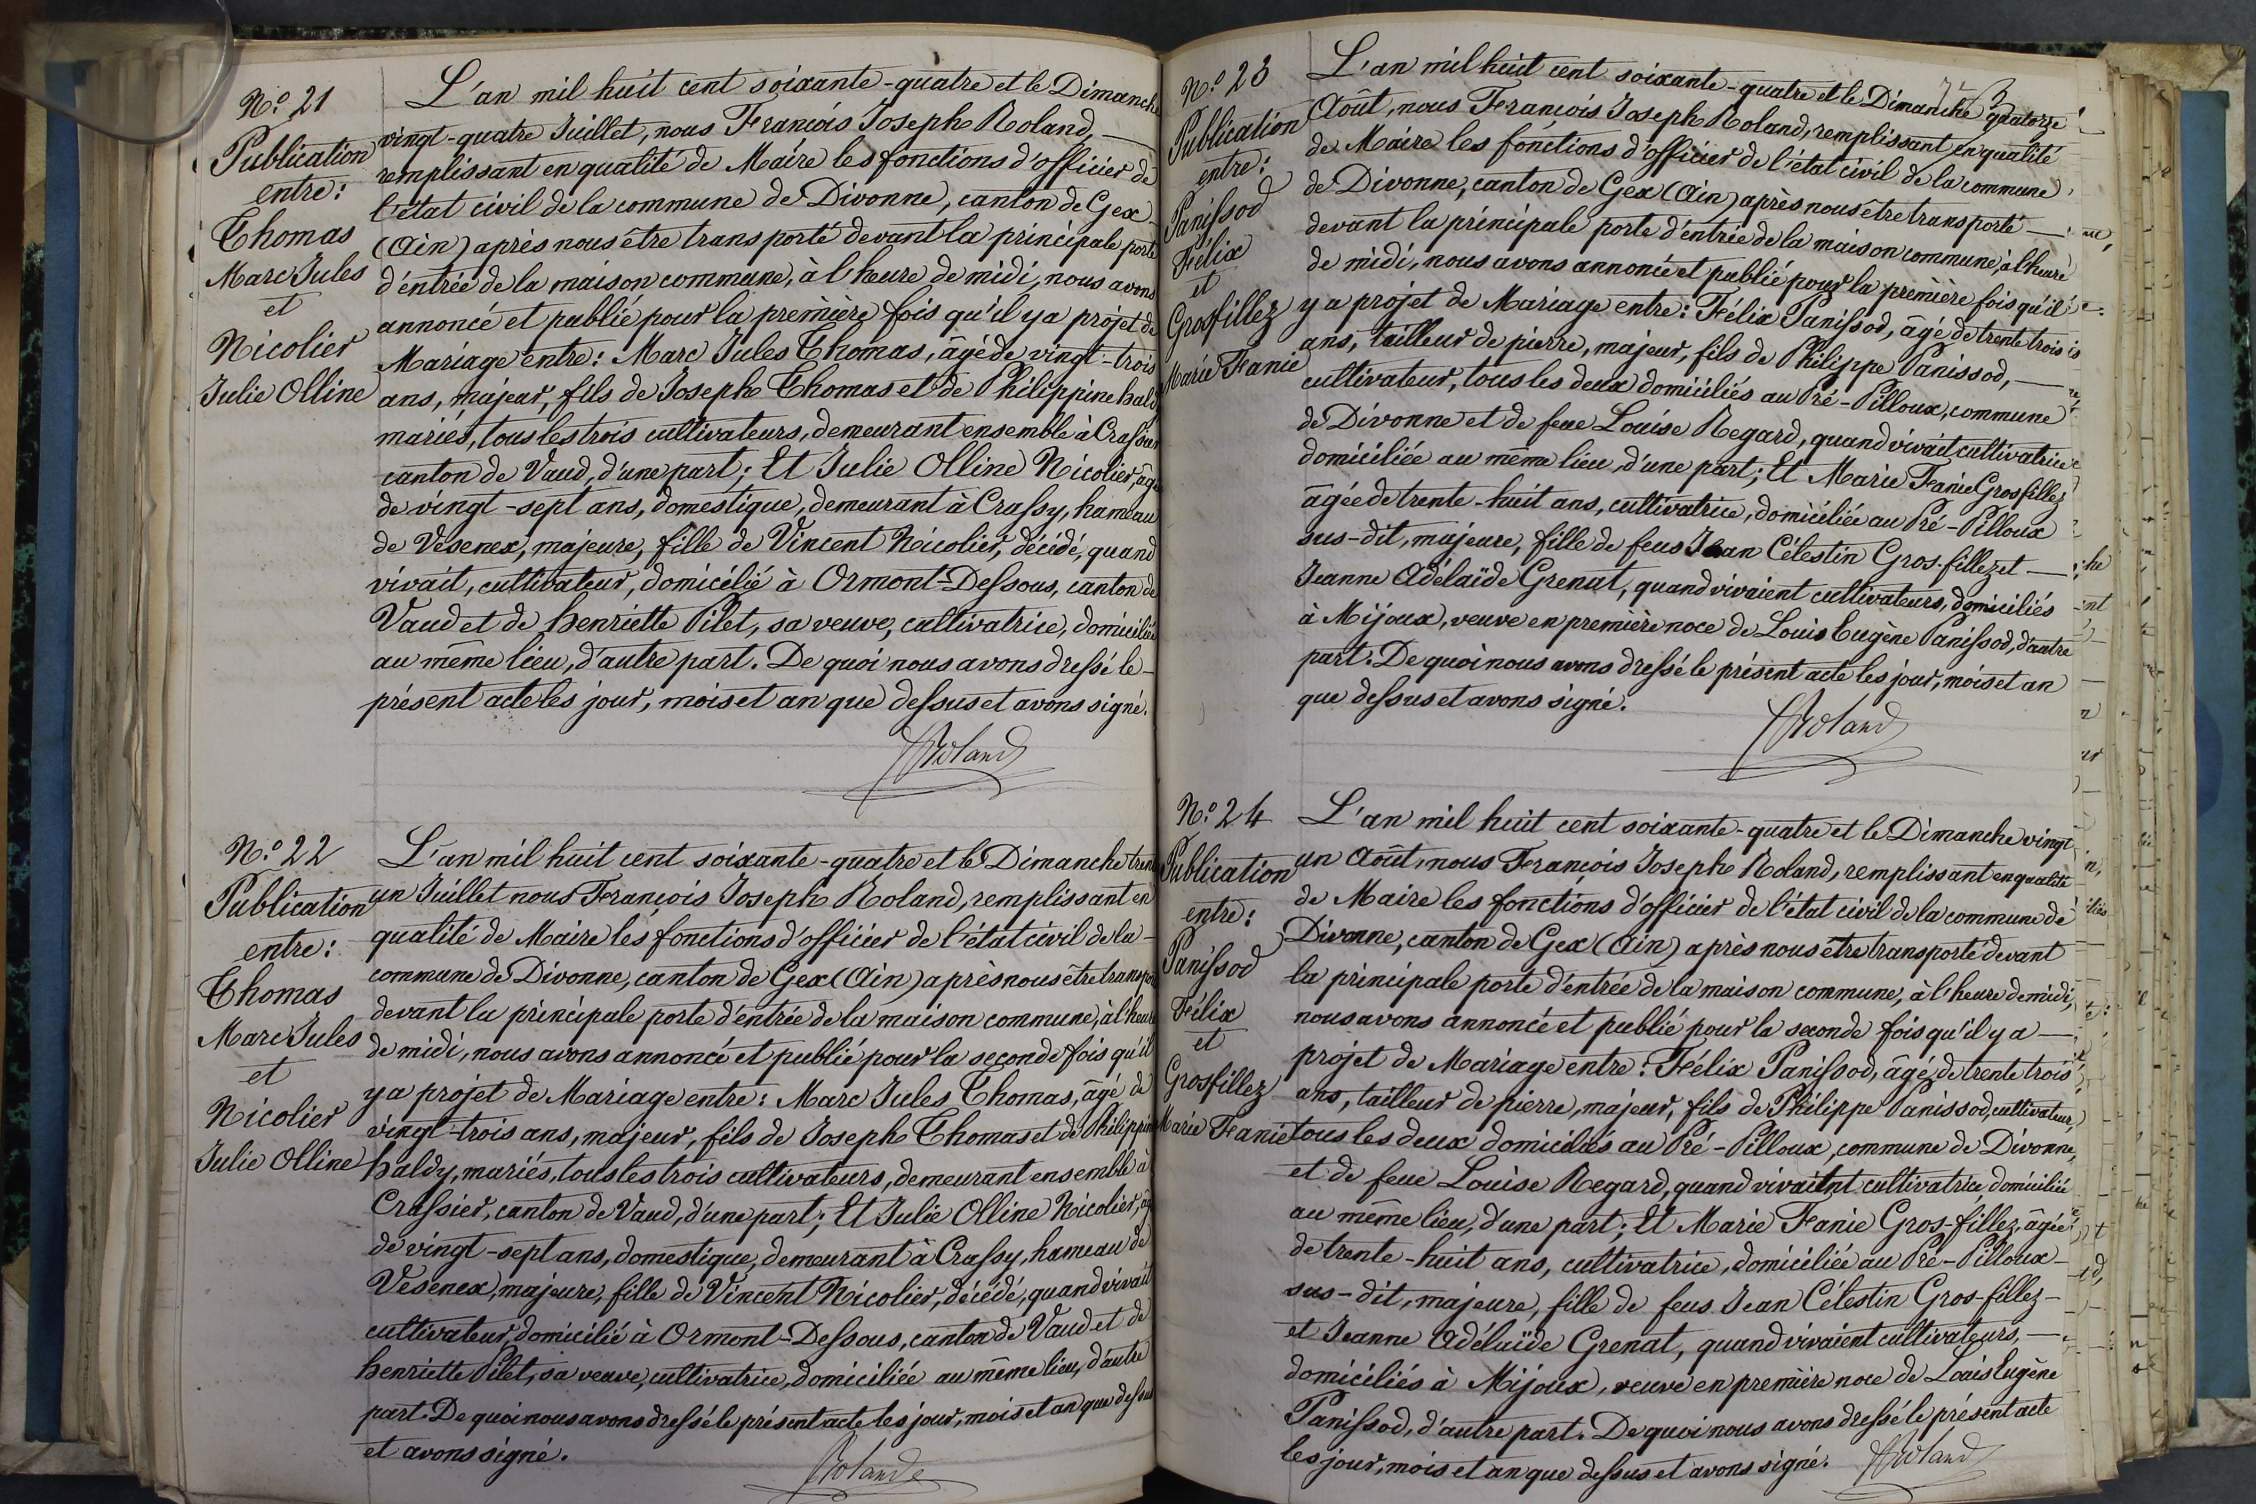 N.º 21
Publication
entre:
Thomas
Marc Jules
et
Nicolier
Julie Olline
L'an mil huit cent soixante-quatre et le Dimanche
vingt-quatre Juillet, nous François Joseph Roland,
remplissant en qualité de Maire les fonctions d'officier de
l'état civil de la commune de Divonne, canton de Gex
(Ain) après nous être transporté devant la principale porte
d'entrée de la maison commune, à l'heure de midi, nous avons
annoncé et publié pour la première fois qu'il y a projet de
Mariage entre: Marc Jules Thomas, âgé de vingt-trois
ans, majeur, fils de Joseph Thomas et de Philippine hald
mariés, tous les trois cultivateurs, demeurant ensemble à
canton de Vaud, d'une part; Et Julie Olline Nicolier, âg
de vingt-sept ans, domestique, demeurant à Crassy, hameau
de Vesenex, majeure, fille de Vincent Nicolier, décédé, quand
vivait, cultivateur, domicilié à Ormont-Dessous, canton de
Vaud et de henriette Pilet, sa veuve, cultivatrice, domiciliée
au même lieu, d'autre part. De quoi nous avons dressé le
présent acte les jour, mois et an que dessus et avons signé.
Roland
N.º 22
Publication
entre:
Thomas
Marc Jules
et
Nicolier
Julie Olline
L'an mil huit cent soixante-quatre et le Dimanche trente
un Juillet nous François Joseph Roland, remplissant en
qualité de Maire les fonctions d'officier de l'état civil de la
commune de Divonne, canton de Gex (Ain) après nous être transpor
devant la principale porte d'entrée de la maison commune, à l'heure
de midi, nous avons annoncé et publié pour la seconde fois qu'il
y a projet de Mariage entre: Marc Jules Thomas, âgé de
vingt-trois ans, majeur, fils de Joseph Thomas et de Philippine
haldy, mariés, tous les trois cultivateurs, demeurant ensemble à
Crassier, canton de Vaud, d'une part; Et Julie Olline Nicolier, âg
de vingt-sept ans, domestique, demeurant à Crassy, hameau de
Vesenex, majeure, fille de Vincent Nicolier, décédé, quand vivait
cultivateur, domicilié à Ormont-Dessous, canton de Vaud et de
henriette Pilet, sa veuve, cultivatrice, domiciliée au même lieu, d'autre
part. De quoi nous avons dressé le présent acte les jour, mois et an que dessus
et avons signé.
Roland
N.º 23
Publication
entre:
Panissod
Félix
et
Grosfillez
Marie Fanie
L'an mil huit cent soixante-quatre et le Dimanche quatorze
Août, nous François Joseph Roland, remplissant en qualité
de Maire les fonctions d'officier de l'état civil de la commune
de Divonne, canton de Gex (Ain) après nous être transporté
devant la principale porte d'entrée de la maison commune, à l'heure
de midi, nous avons annoncé et publié pour la première fois qu'il
y a projet de Mariage entre: Félix Panissod, âgé de trente trois
ans, tailleur de pierre, majeur, fils de Philippe Panissod,
cultivateur, tous les deux domiciliés au Pré-Pilloux, commune
de Divonne et de feue Louise Regard, quand vivait cultivatrice
domiciliée au même lieu, d'une part; Et Marie Fanie Grosfillez
âgée de trente-huit ans, cultivatrice, domiciliée au Pré-Pilloux
sus-dit, majeure, fille de feus Jean Célestin Gros-fillez et
Jeanne Adélaïde Grenat, quand vivaient cultivateurs, domiciliés
à Mijoux, veuve en première noce de Louis Eugène Panissod, d'autre
part. De quoi nous avons dressé le présent acte les jour, mois et an
que dessus et avons signé.
Roland
N.º 24
Publication
entre:
Panissod
Félix
et
Grosfillez
Marie Fanie
L'an mil huit cent soixante-quatre et le Dimanche vingt
un Août, nous François Joseph Roland, remplissant en qualité
de Maire les fonctions d'officier de l'état civil de la commune de
Divonne, canton de Gex (Ain) après nous être transporté devant
la principale porte d'entrée de la maison commune, à l'heure de midi,
nous avons annoncé et publié pour la seconde fois qu'il y a
projet de Mariage entre: Félix Panissod, âgé de trente trois
ans, tailleur de pierre, majeur, fils de Philippe Panissod, cultivateur,
tous les deux domiciliés au Pré-Pilloux, commune de Divonne,
et de feue Louise Regard, quand vivait cultivatrice, domiciliée
au même lieu, d'une part; Et Marie Fanie Gros-fillez, âgée
de trente-huit ans, cultivatrice, domiciliée au Pré-Pilloux
sus-dit, majeure, fille de feus Jean Célestin Gros-fillez
et Jeanne Adélaïde Grenat, quand vivaient cultivateurs,
domiciliés à Mijoux, veuve en première noce de Louis Eugène
Panissod, d'autre part. De quoi nous avons dressé le présent acte
les jour, mois et an que dessus et avons signé.
Roland